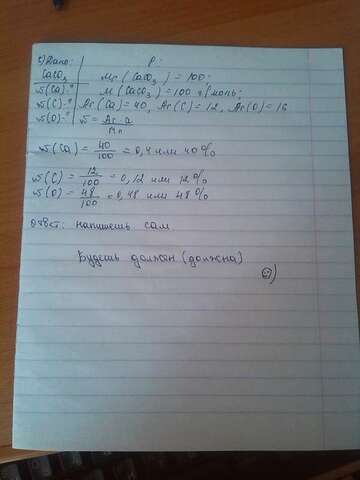 5) Дано: Р:
CaCO3 Mr (CaCO3) = 100;
w(Ca)-? M (CaCO3) = 100 г/моль;
w(C)-? Ar(Ca) = 40, Ar(C) = 12, Ar(O) = 16
w(O)-? w = Ar·a / Mr
w(Ca) = 40/100 = 0,4 или 40%
w(C) = 12/100 = 0,12 или 12%
w(O) = 48/100 = 0,48 или 48%
Ответ: напишешь сам
Будешь должен (должна)